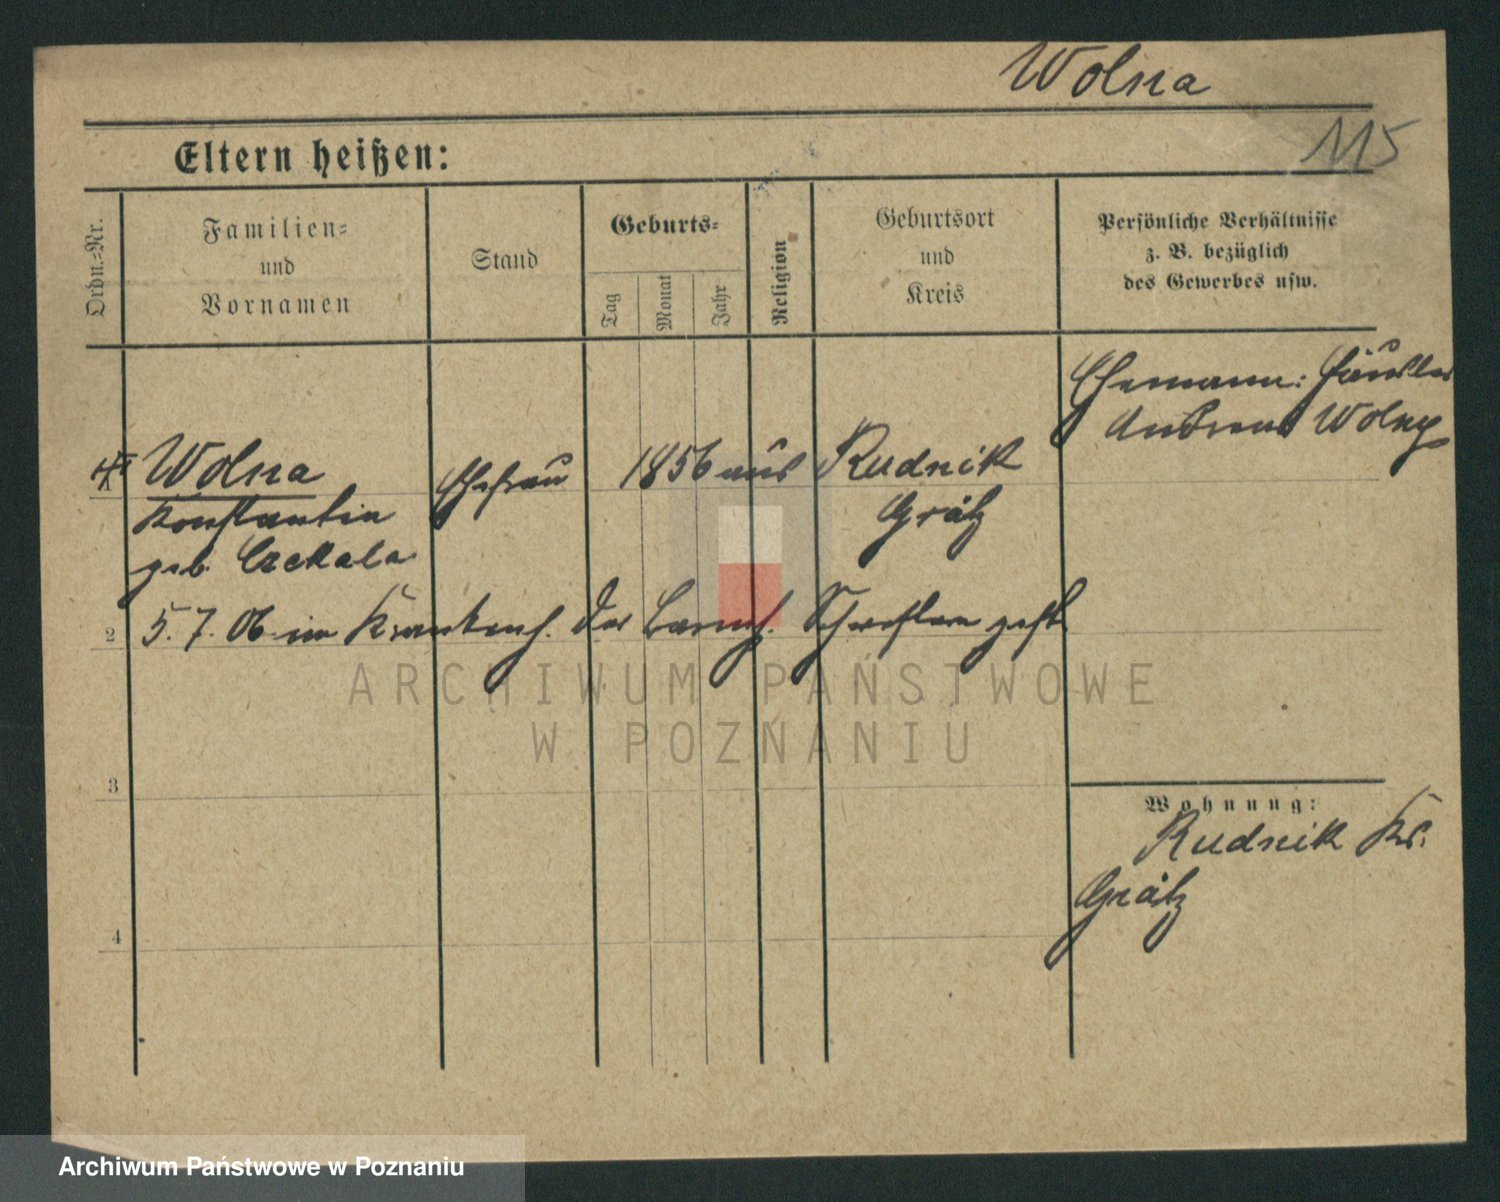 Wolna
115
Eltern heißen:
Ordn.-Nr.
Familien-
und
Vornamen
Stand
Geburts-
Tag
Monat
Jahr
Religion
Geburtsort
und
Kreis
Persönliche Verhältnisse
z. B. bezüglich
des Gewerbes usw.
Ehemann: Häusler
Andreas Wolny
Wolna Ehefrau 1856 aus Rudnik
Konstantin Grätz
geb. Czekala
2 5. 7. 06 im Krankenh. der Barmh. Schwestern gest.
3
4
Wohnung:
Rudnik Kr.
Grätz
ARCHIWUM PAŃSTWOWE
W POZNANIU
Archiwum Państwowe w Poznaniu